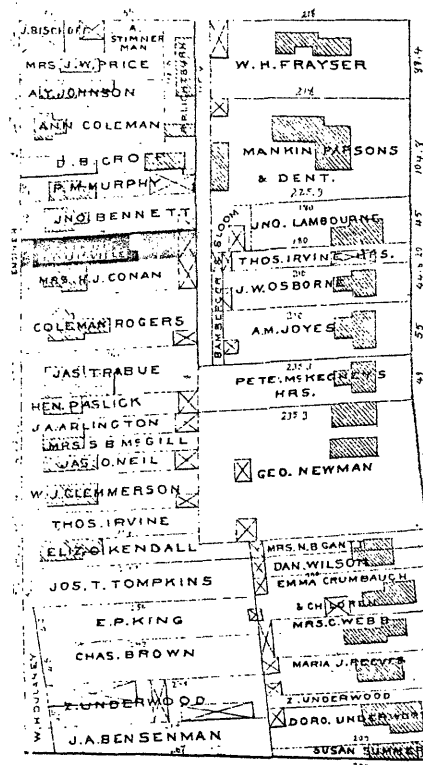 J. BISCHOFF
A.
STIMNER
MAN
MRS. J.W. PRICE
A.Y. JOHNSON
ANN COLEMAN
D.B. GROFF
P.M. MURPHY
JNO. BENNETT
LOUISVILLE
MRS. H.J. CONAN
COLEMAN ROGERS
JAS. TRABUE
HEN. PASLICK
J.A. ARLINGTON
MRS. S B McGILL
JAS. O. NEIL
W.J. CLEMMERSON
THOS. IRVINE
ELIZ. C. KENDALL
JOS. T. TOMPKINS
E.P. KING
CHAS. BROWN
Z. UNDERWOOD
J.A. BENSENMAN
W.H. DULANEY
218
W.H. FRAYSER
218
MANKIN PARSONS
& DENT.
225.9
104.8
BAMBERGER & BLOOM
180
JNO. LAMBOURNE
45
180
THOS. IRVINE HRS.
210
J.W. OSBORNE
210
A.M. JOYES
55
235.3
PETE. McKEGNEY'S
HRS.
235.3
GEO. NEWMAN
MRS. N.B GANTT
DAN. WILSON
EMMA CRUMBAUGH
& CHILDREN
MRS. C. WEBB
MARIA J. REEVES
Z. UNDERWOOD
DORO. UNDERWOOD
205
SUSAN SUMMER